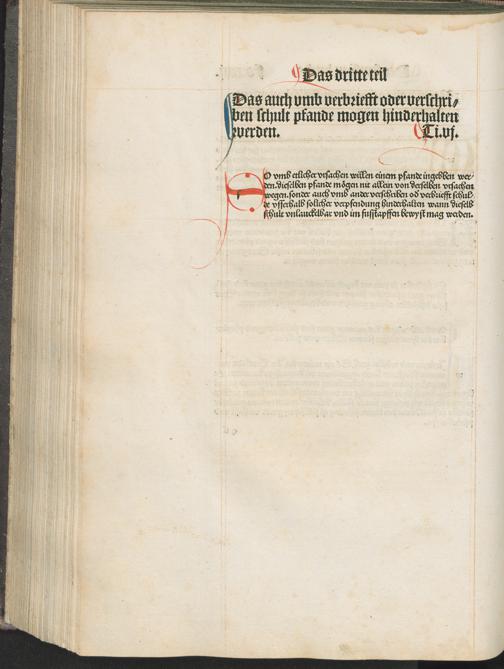 Das dritte teil
Das auch vmb verbriefft oder verschri⸗
ben schult pfande mogen hinderhalten
werden. Ti.vj.
SO vmb etlicher vrsachen willen einem pfande ingebben wer⸗
den. dieselben pfande mögen nit allein von derselben vrsachen
wegen. sonder auch vmb ander verschriben od verbriefft schul⸗
de vsserhalb solicher verpfendung hinderhalten wann dieselb
schulde vnlauckelbar vnd im fusstapffen bewyst mag werden.